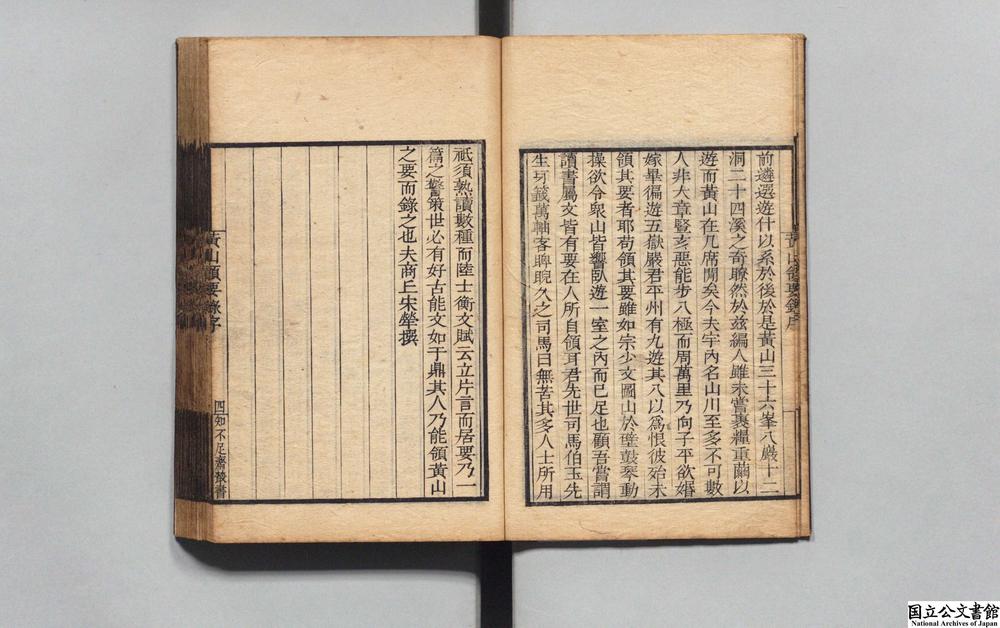 前遴選遊什以系於後於是黃山三十六峯八巖十二
洞二十四溪之奇瞭然於兹編人雖未嘗裹糧重繭以
遊而黃山在几席閒矣今夫宇內名山川至多不可數
人非大章豎亥惡能步八極而周萬里乃向子平欲婚
嫁畢徧遊五嶽嚴君平州有九遊其八以爲恨彼殆未
領其要者耶苟領其要雖如宗少文圖山於壁鼓琴動
操欲令衆山皆響臥遊一室之內而已足也顧吾嘗謂
讀書屬文皆有要在人所自領耳君先世司馬伯玉先
生牙籤萬軸客睥睨久之司馬曰無苦其多人士所用
祗須熟讀數種而陸士衡文賦云立片言而居要乃一
篇之警策世必有好古能文如于鼎其人乃能領黃山
之要而錄之也夫商丘宋犖撰
黃山領要錄序
四
知不足齋叢書
国立公文書館
National Archives of Japan